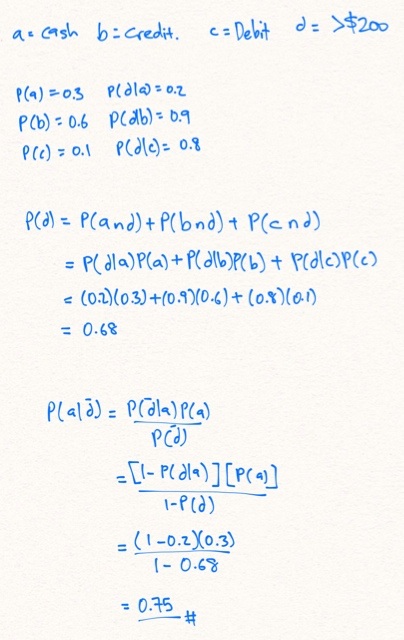 a = cash b = Credit. c = Debit d = >$200
P(a) = 0.3 P(d|a) = 0.2
P(b) = 0.6 P(d|b) = 0.9
P(c) = 0.1 P(d|c) = 0.8
P(d) = P(a∩d) + P(b∩d) + P(c∩d)
= P(d|a)P(a) + P(d|b)P(b) + P(d|c)P(c)
= (0.2)(0.3) + (0.9)(0.6) + (0.8)(0.1)
= 0.68
P(a|d̄) = P(d̄|a)P(a)
P(d̄)
= [1 - P(d|a)][P(a)]
1 - P(d)
= (1 - 0.2)(0.3)
1 - 0.68
= 0.75 #